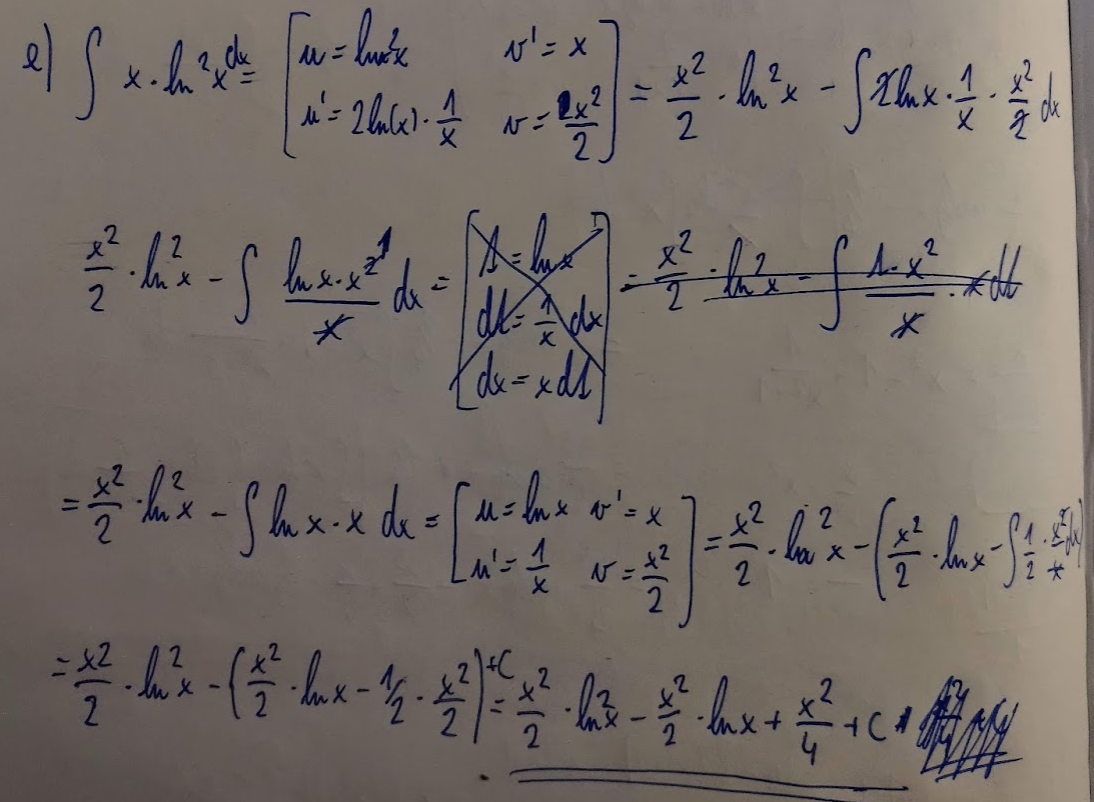 e) ∫ x · ln²x dx = [u = ln²x v' = x u' = 2ln(x) · 1/x v = x²/2] = x²/2 · ln²x - ∫ 2lnx · 1/x · x²/2 dx
x²/2 · ln²x - ∫ (lnx · x²)/x dx = [t = lnx dt = 1/x dx dx = x dt] = x²/2 · ln²x - ∫ (t · x²)/x · x dt
= x²/2 · ln²x - ∫ ln x · x dx = [u = ln x v' = x u' = 1/x v = x²/2] = x²/2 · ln²x - (x²/2 · lnx - ∫ 1/2 · x²/x dx)
= x²/2 · ln²x - (x²/2 · lnx - 1/2 · x²/2) + C = x²/2 · ln²x - x²/2 · lnx + x²/4 + C